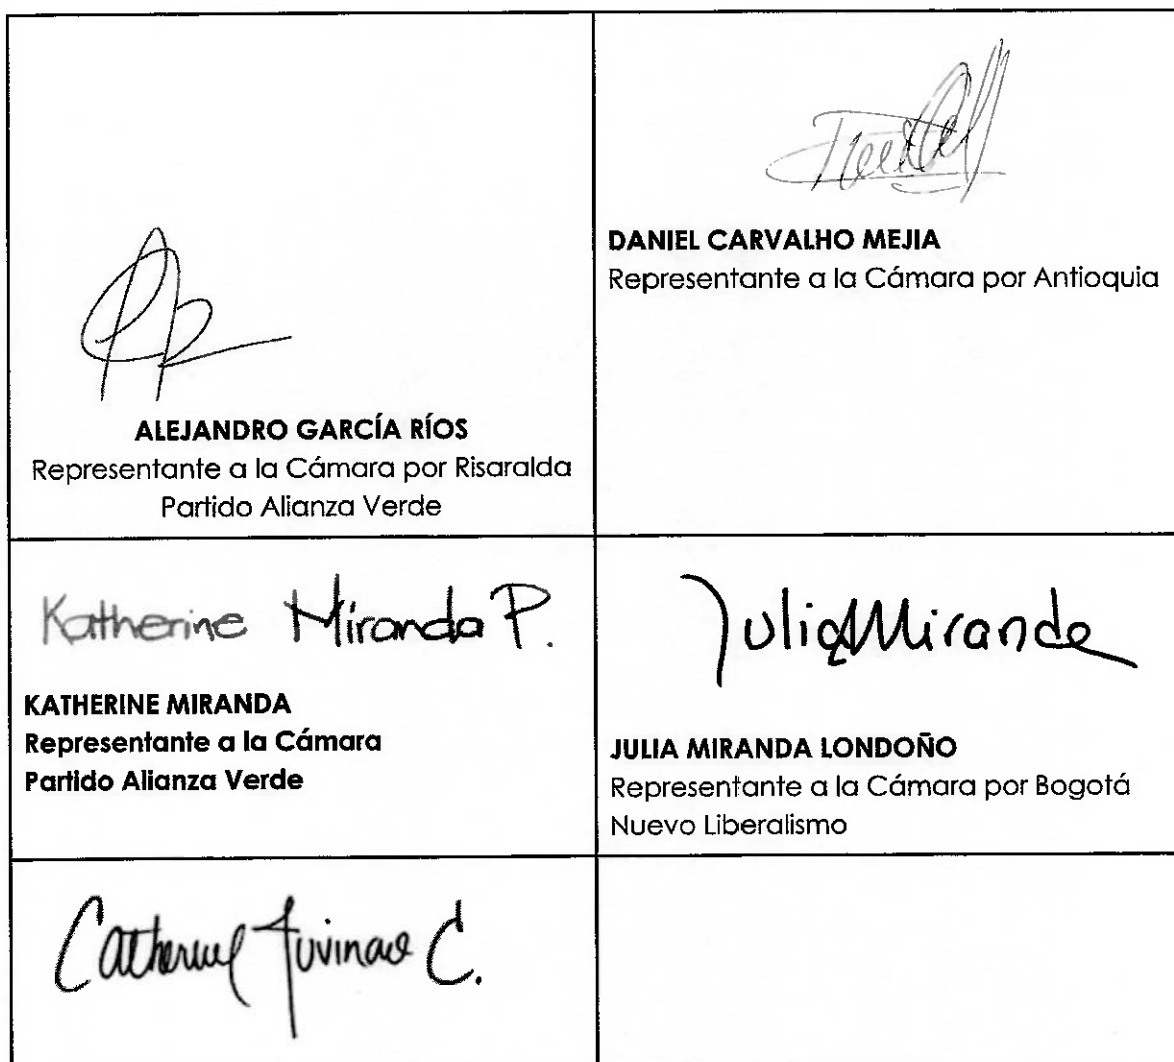 ALEJANDRO GARCÍA RÍOS
Representante a la Cámara por Risaralda
Partido Alianza Verde
DANIEL CARVALHO MEJIA
Representante a la Cámara por Antioquia
Katherine Miranda P.
KATHERINE MIRANDA
Representante a la Cámara
Partido Alianza Verde
Julia Miranda
JULIA MIRANDA LONDOÑO
Representante a la Cámara por Bogotá
Nuevo Liberalismo
Catherine Juvinao C.